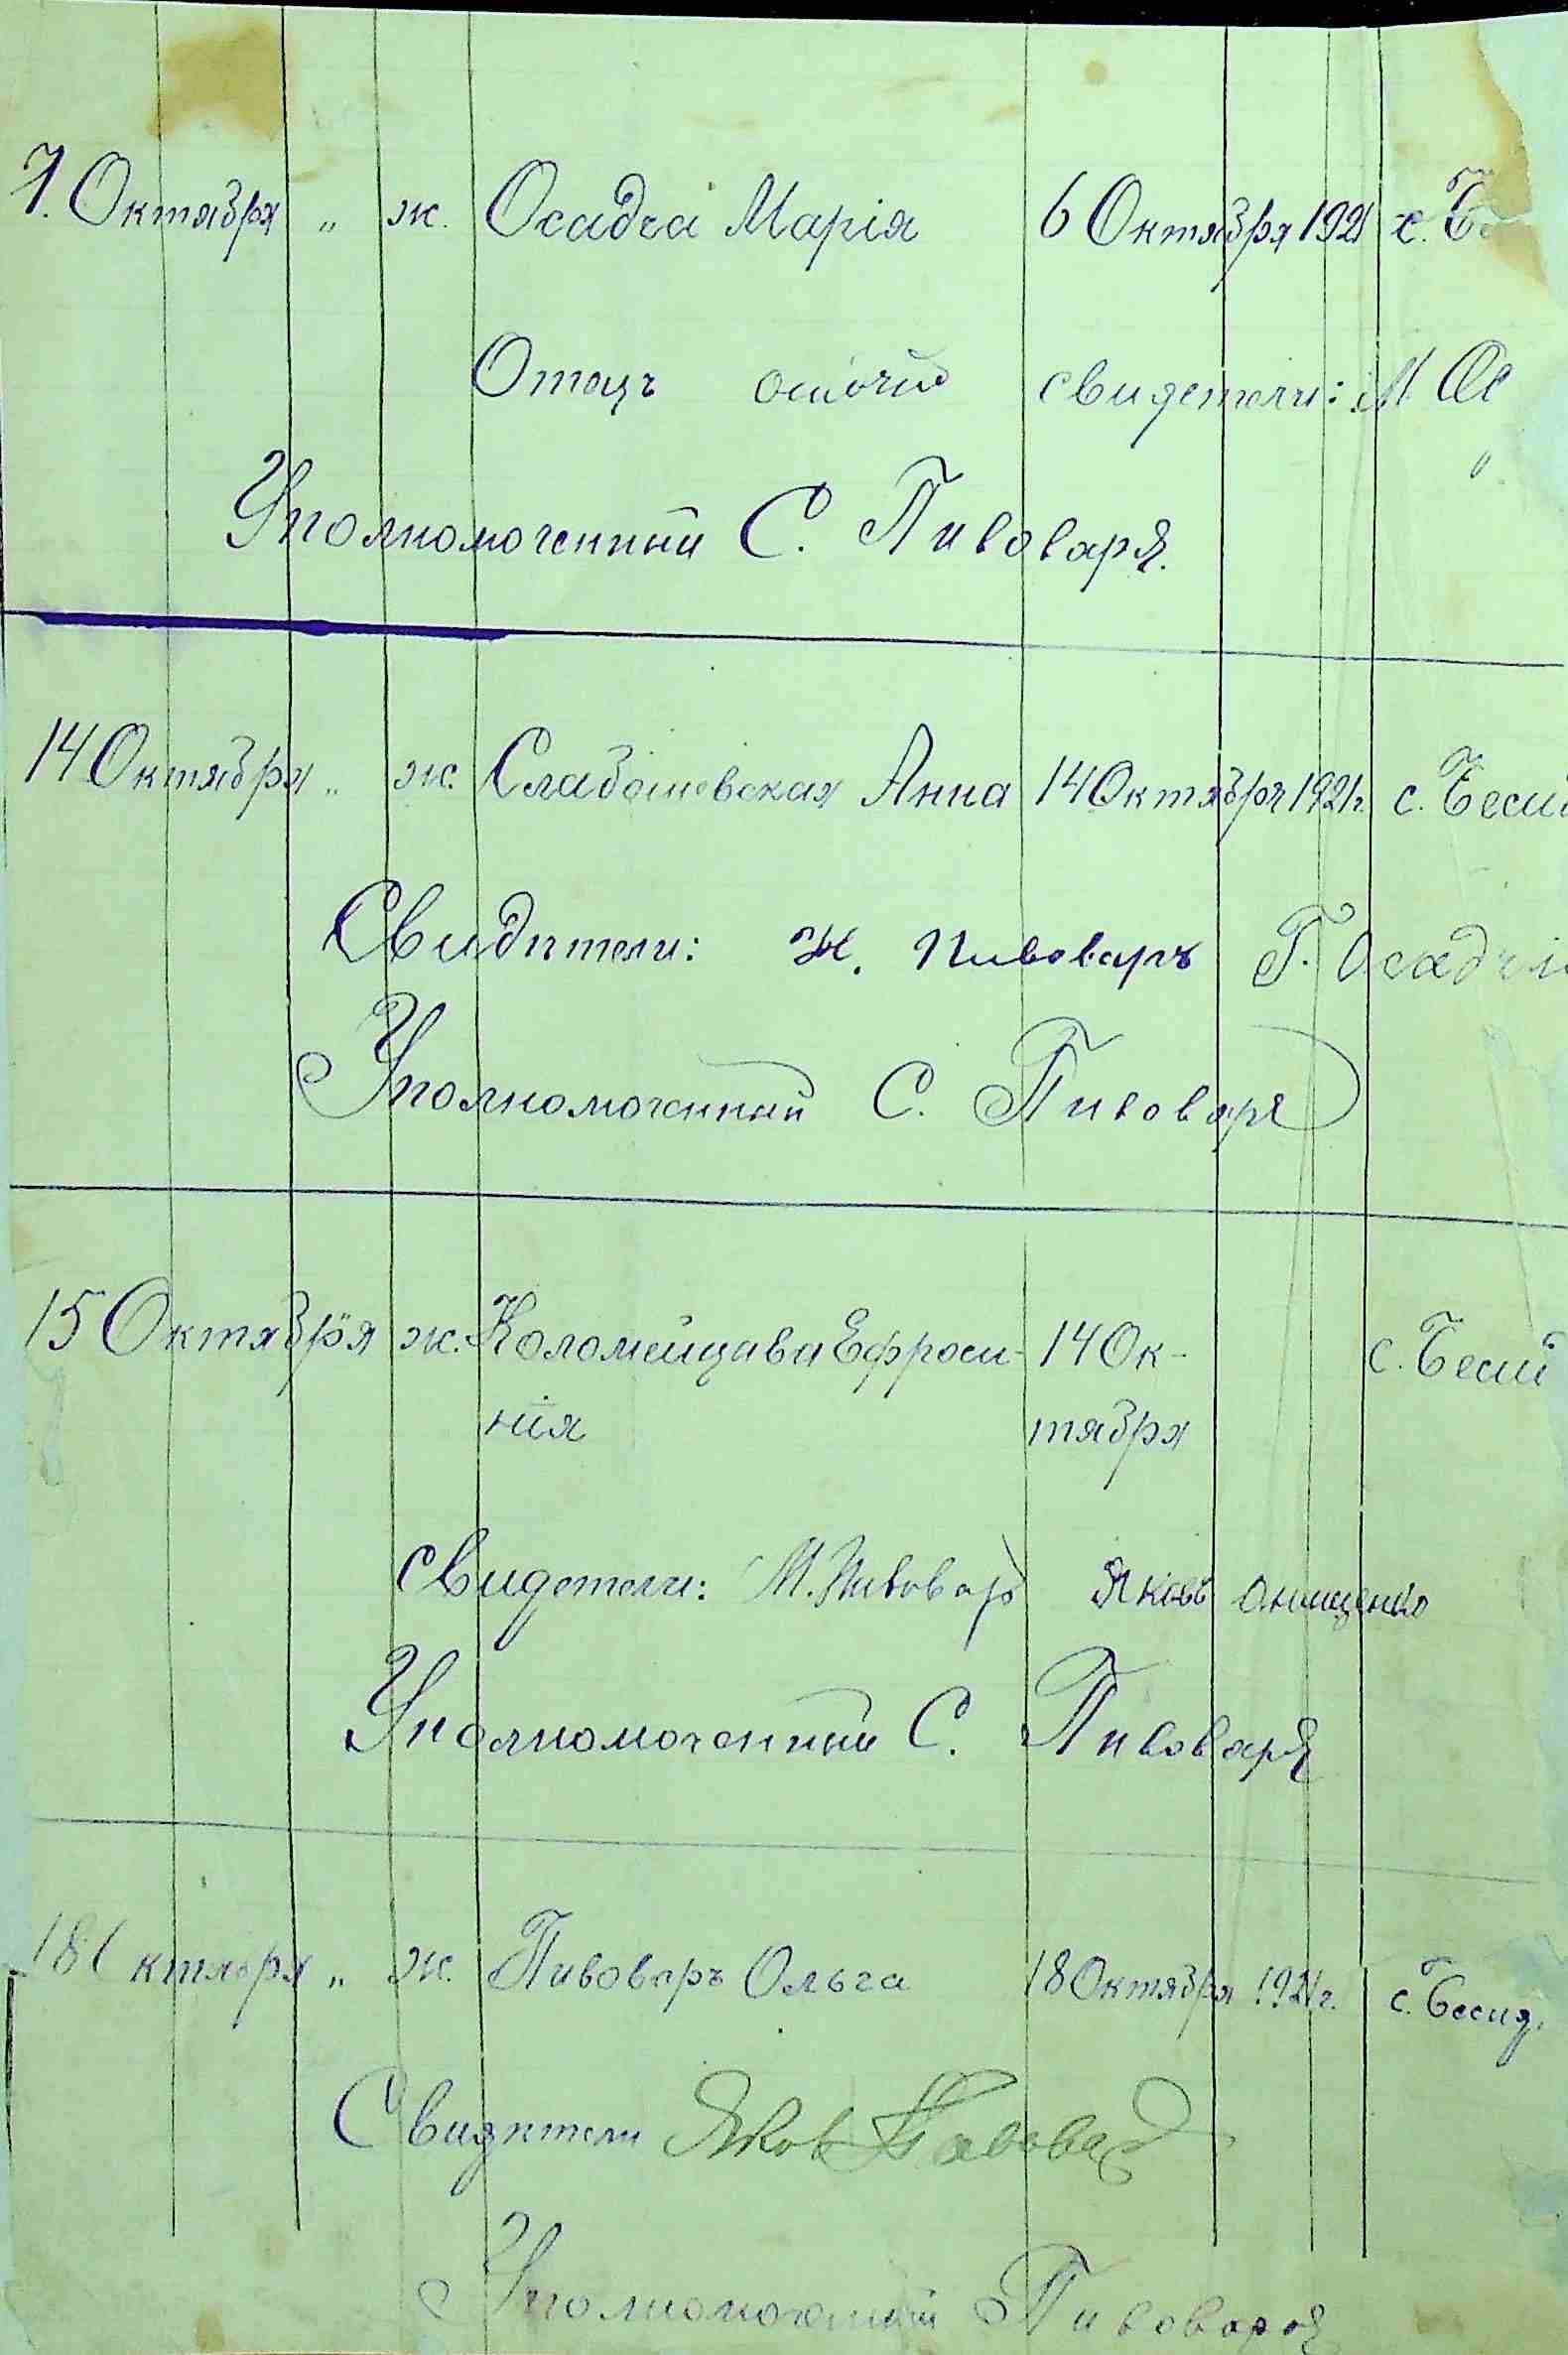 7. Октября „ ж. Осадча Марія 6 Октября 1921 с. Б
Отецъ свидетели: М Ос
Уполномоченный С. Пивоваръ.
14 Октября „ ж. Слабошевская Анна 14 Октября 1921 г. с. Беси
Свидѣтели: Н. Пивоваръ Г. Осадчи
Уполномоченный С. Пивоваръ
15 Октября ж. Коломейцава Ефроси- 14 Ок- с. Беси
нія тября
свидетели: М. Пивовар Яковъ Онищенко
Уполномоченный С. Пивоваръ
18 Октября „ ж. Пивоваръ Ольга 18 Октября 1921 г. с. Бесид.
Свидѣтели Яков Пивовар
Уполномоченный Пивоваръ